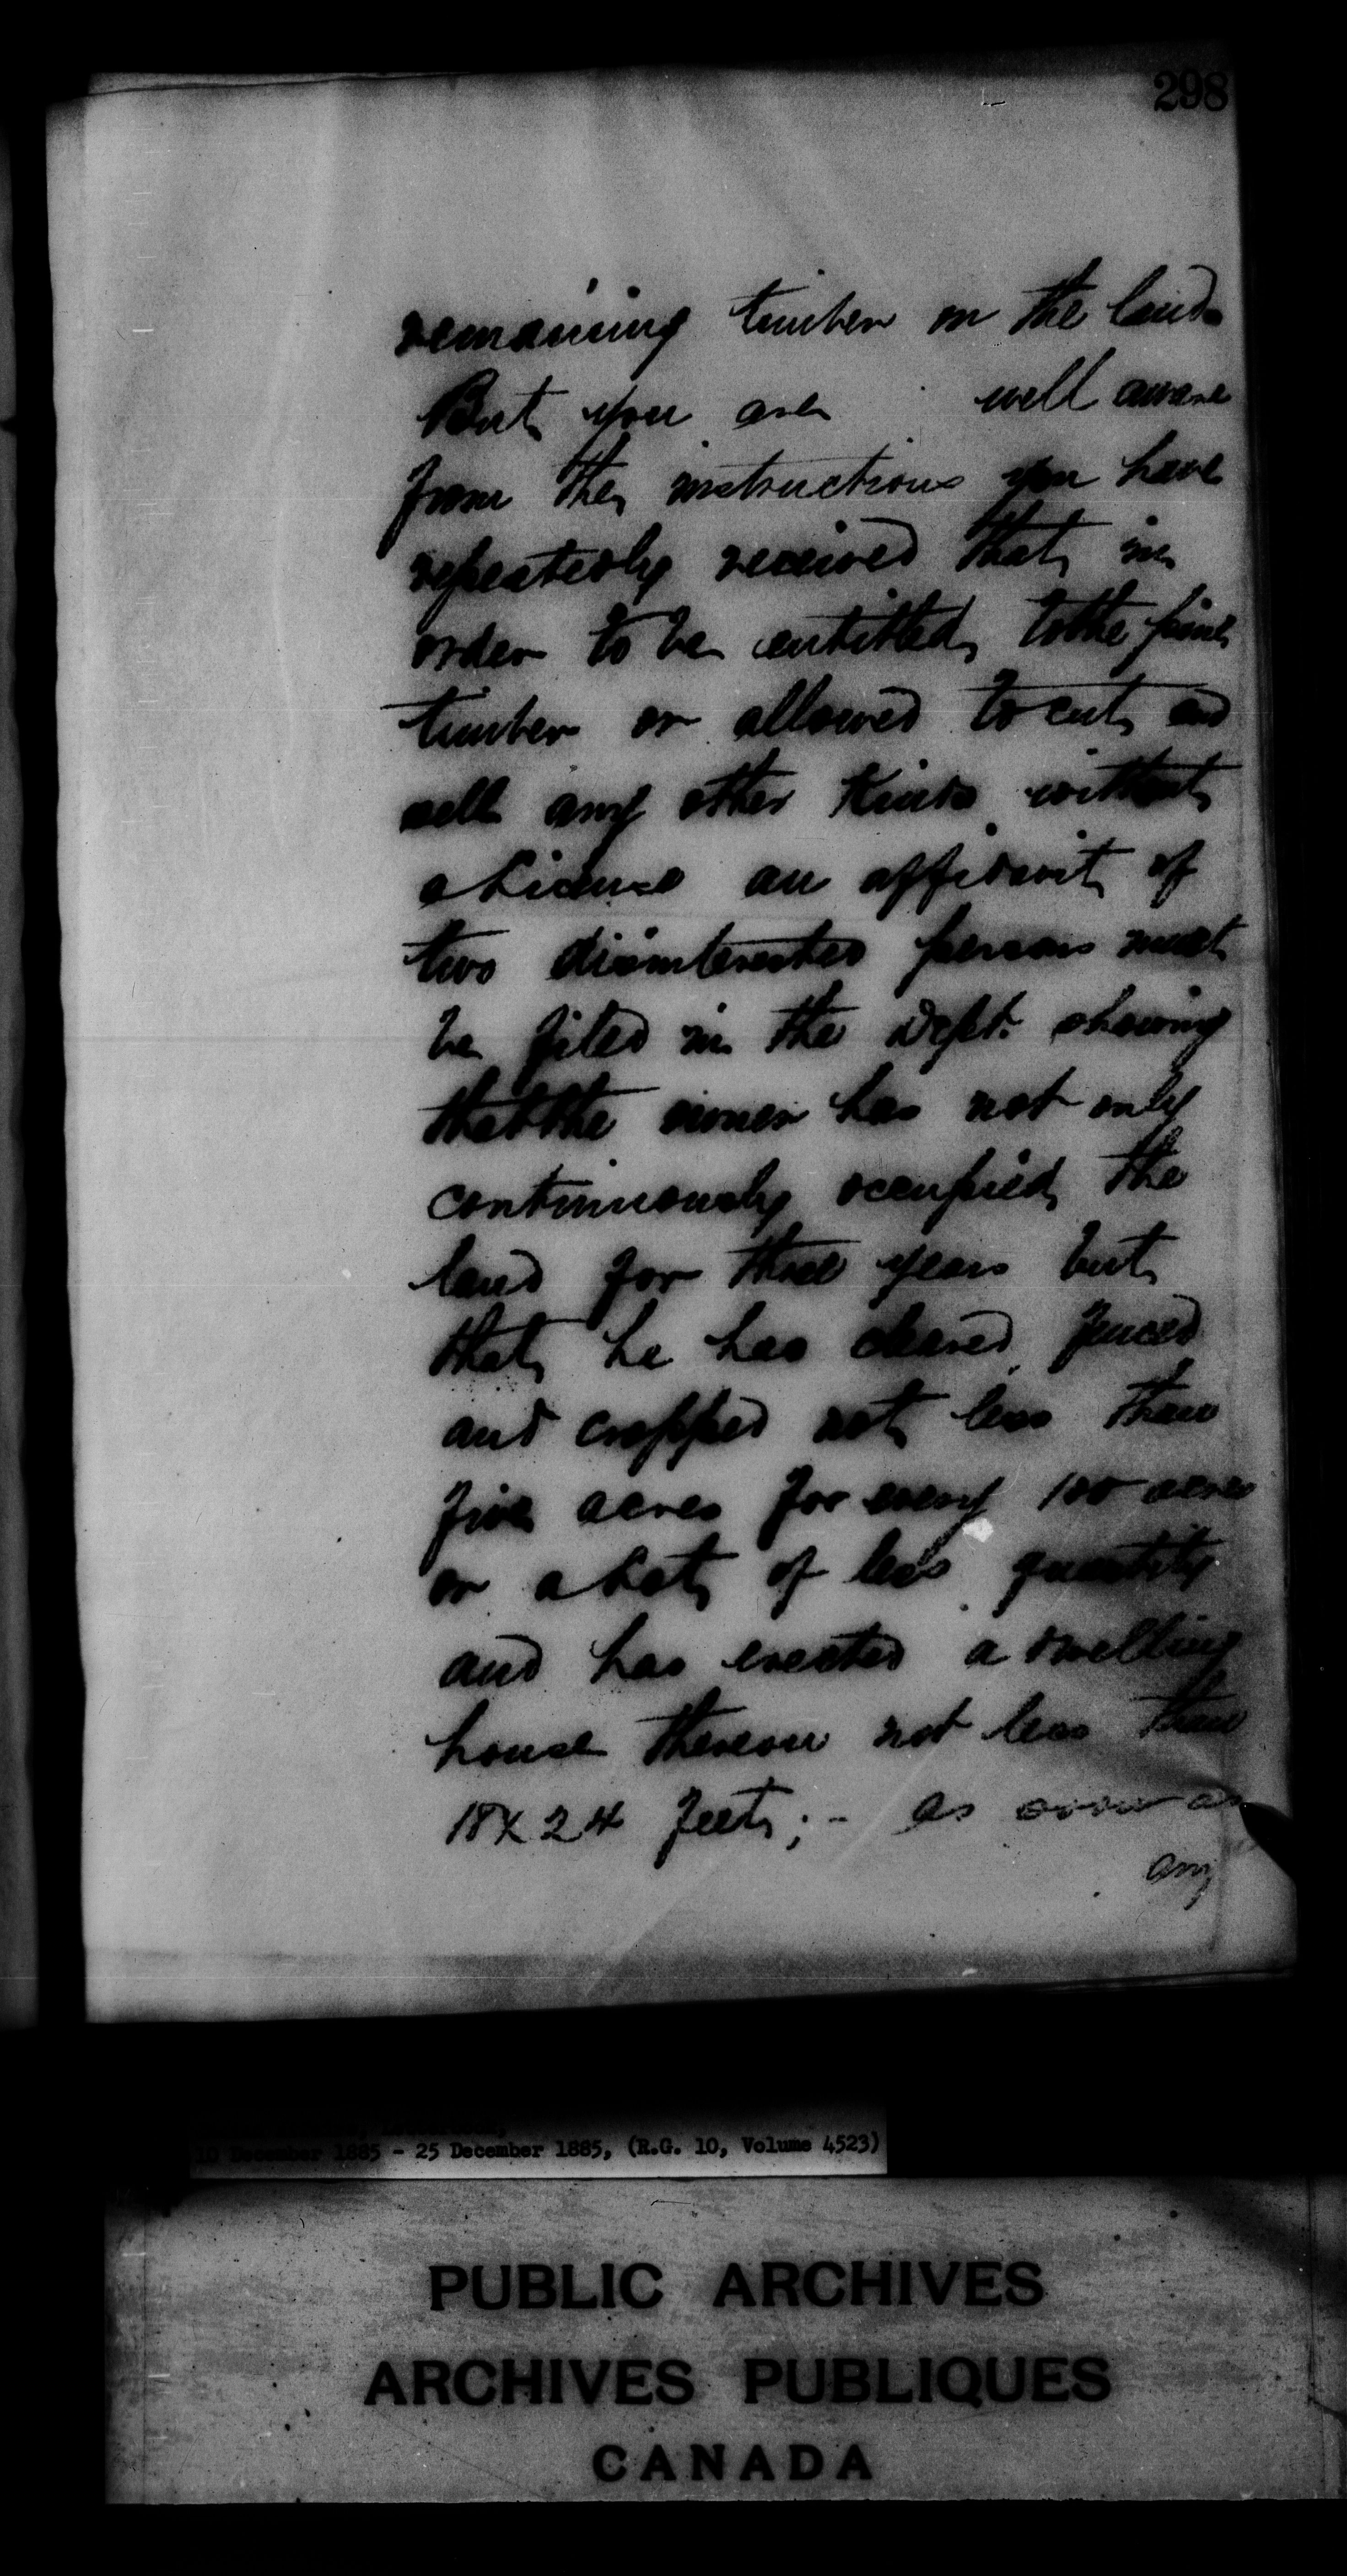 298
remaining timber on the land.
But you are well aware
from the instructions you have
repeatedly received that in
order to be entitled to the pine
timber or allowed to cut and
sell any other kinds without
a License an affidavit of
two disinterested persons must
be filed in the Dept. showing
that the owner has not only
continuously occupied the
land for three years but
that he has cleared fenced
and cropped not less than
five acres for every 100 acres
or a Lot of less quantity
and has erected a dwelling
house thereon not less than
18 x 24 feet; - as soon as
any
10 December 1885 - 25 December 1885, (R.G. 10, Volume 4523)
PUBLIC ARCHIVES
ARCHIVES PUBLIQUES
CANADA